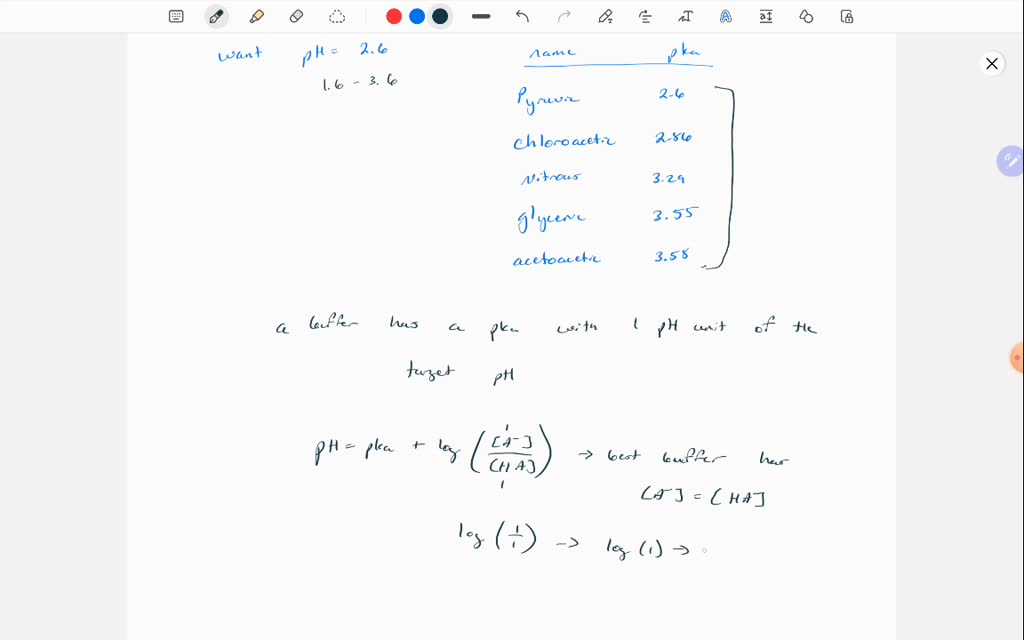 want pH = 2.6
1.6 - 3.6
name pka
Pyruvic 2.6
chloroacetic 2.86
Nitrous 3.29
glyceric 3.55
acetoacetic 3.58
a buffer has a pka with 1 pH unit of the
target pH
pH = pka + log ([A-]/[HA]) → best buffer has
1
1
[A-] = [HA]
log (1/1) → log (1) →